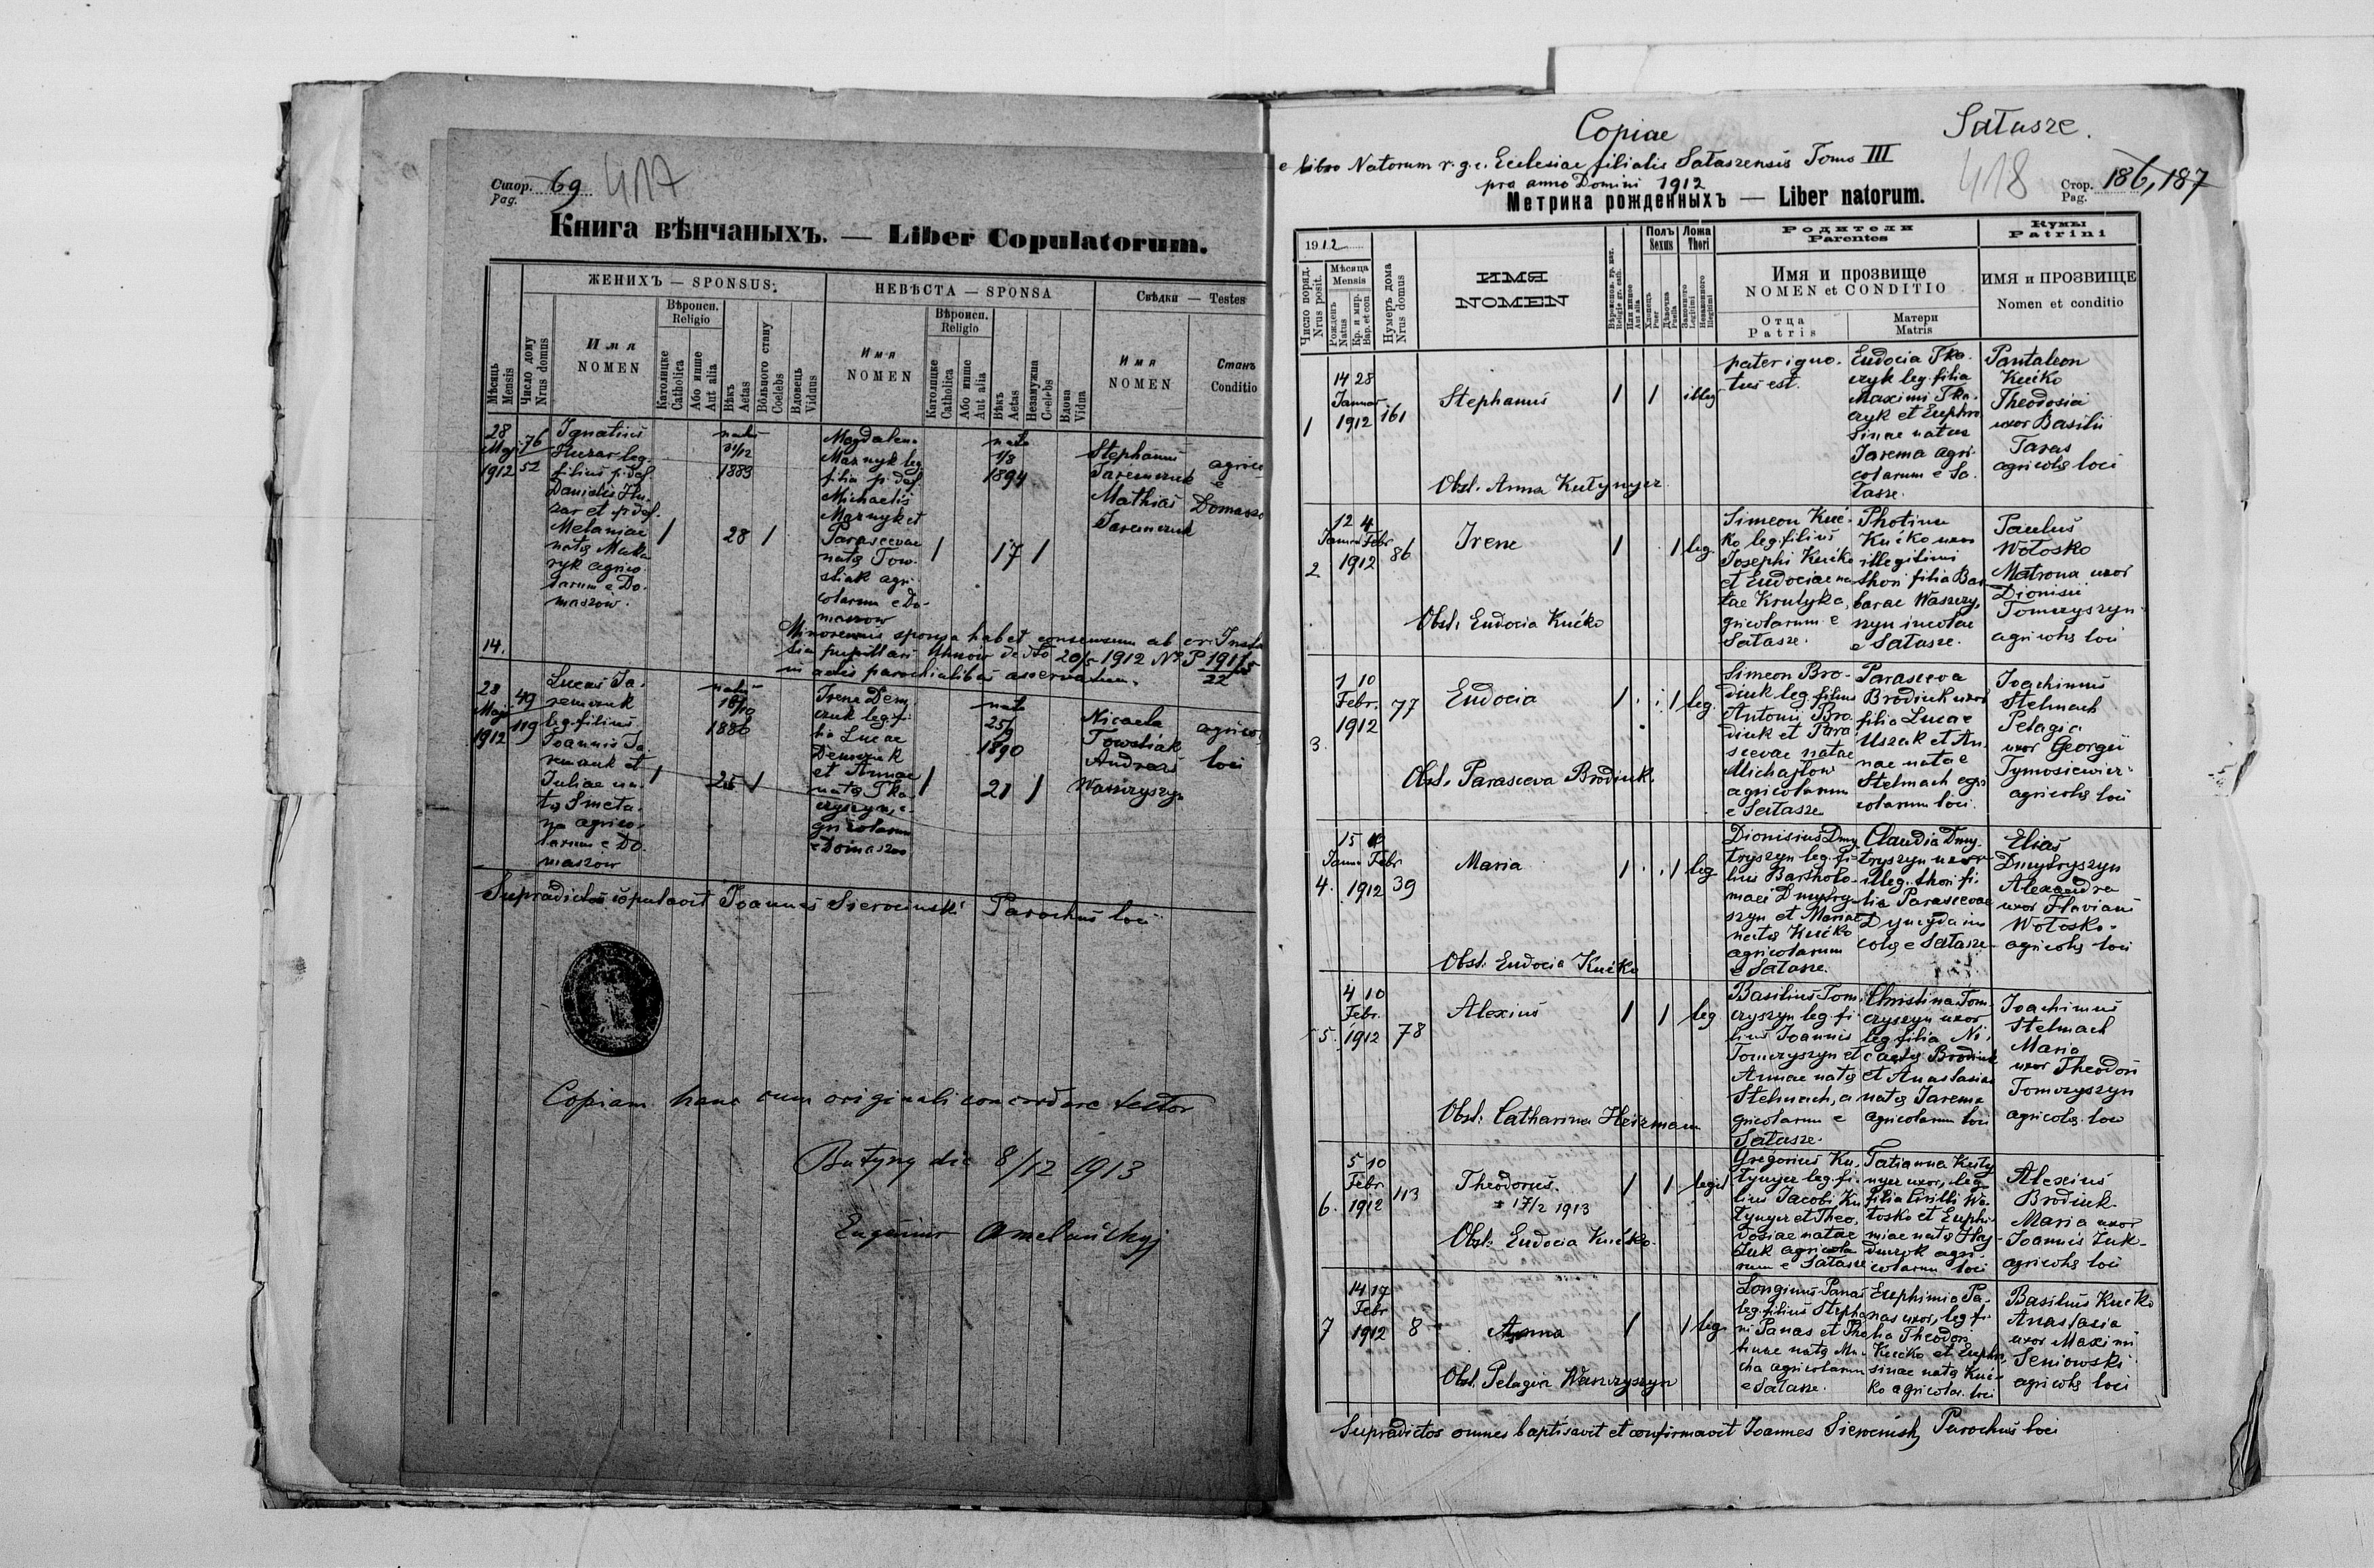 Стор. 69 417
Pag.
Книга вѣнчаныхъ. — Liber Copulatorum.
ЖЕНИХЪ — SPONSUS.
НЕВѢСТА — SPONSA
Свѣдки — Testes
Мѣсяць
Mensis
Число дому
Nrus domus
Имя
NOMEN
Вѣроисп.
Religio
Католицке
Catholica
Або инше
Aut alia
Вѣкъ
Aetas
Вôльного стану
Coelebs
Вдовець
Viduus
Имя
NOMEN
Вѣроисп.
Religio
Католицке
Catholica
Або инше
Aut alia
Вѣкъ
Aetas
Незамужна
Coelebs
Вдова
Vidua
Имя
NOMEN
Станъ
Conditio
28
Maj
1912
76
52
Ignatius
Huzar leg.
filius p. def.
Danielis Hu-
zar et p. def.
Melaniae
natae
ryk agrico-
larum e Do-
maszow.
1
natus
1883
28 1
Magdalena
Maznyk leg
filia p. def
Michaelis
Maznyk et
Parascevae
natae Tow-
stiak agri-
colarum e Do-
maszow
1
nata
1/8
1894
17 1
Stephanus
Jaremczuk
Mathias
Jaremczuk
agrico
e
Domaszo
14.
Minorennis sponsa habet consensum ab
pupillari Uhnow de dto 20/5 1912 Nr P
in actis parochialibus asservatum.
28
Maj
1912
49
119
Lucas Ja-
remczuk
leg. filius
Joannis Ja-
remczuk et
Juliae na-
tae Smeta-
na agrico-
larum e Do-
maszow
1
natus
18/10
1886
25 1
Irena Dem
czuk leg. fi-
lia Lucae
Demczuk
et Annae
natae Tka-
czyszyn, a-
gricolarum
e Domaszow
1
nata
25/9
1890
21 1
Nicaela
Towstiak
Andreas
Wawryszyn
agrico
loci
Supradictos copulavit Joannes Sierocinski Parochus loci
Copiam hanc cum originali concordare testor
Butyny die 8/12 1913
Eugenius
Copiae
Sałasze.
e libro Natorum r. g. c. Ecclesiae filialis Sałaszensis Tomo III
pro anno Domini 1912
418
Стор. 186, 187
Pag.
Метрика рожденныхъ — Liber natorum.
1912
Число поряд.
Nrus posit.
Мѣсяца
Mensis
Рожденъ
Natus
Кр. и мир.
Bap. et con
Нумеръ дома
Nrus domus
ИМЯ
NOMEN
Вѣроиспов. гр. кат.
Religio gr. cath.
Или инное
Aut alia
Полъ
Sexus
Хлопецъ
Puer
Дѣвочка
Puella
Ложа
Thori
Законного
Legitimi
Незаконного
Illegitimi
Родители
Parentes
Имя и прозвище
NOMEN et CONDITIO
Отца
Patris
Матери
Matris
Кумы
Patrini
ИМЯ и ПРОЗВИЩЕ
Nomen et conditio
1
14 28
Januar
1912
161
Stephanus
Obst. Anna Kutynyer
1 1 illeg
pater igno-
tus est.
Eudocia Tka-
czyk leg. filia
Maximi Tka-
czyk et Euphro
sinae natae
Jarema agri-
colarum e Sa-
łasze.
Pantaleon
Kućko
Theodosia
uxor Basilii
Taras
agricolae loci
2
12 4
Januar Febr
1912
86
Irene
Obst. Eudocia Kućko
1 1 leg.
Simeon Kuć-
ko leg. filius
Josephi Kućko
et Eudociae na
tae Krutyka,
gricolarum e
Sałasze.
Photina
Kućko uxor
illegitimi
thori filia Bar
barae Waszczy,
szyn incolae
e Sałasze.
Paulus
Wołosko
Matrona uxor
Dionisii
Tomczyszyn
agricolae loci
3.
1 10
Febr.
1912
77
Eudocia
Obst. Parasceva Brodiuk.
1 1 leg.
Simeon Bro-
diuk leg. filius
Antonii Bro-
diuk et Para
scevae natae
Michajłow
agricolarum
e Sałasze
Parasceva
Brodiuk uxor
filia Lucae
Uszak et An-
nae natae
Stelmach agri
colarum loci.
Joachimus
Stelmach
Pelagia
uxor Georgii
Tymosiewicz
agricolae loci
4.
15
Januar Febr
1912
39
Maria
Obst. Eudocia Kućko
1 1 leg
Dionisius Dmy
tryszyn leg. fi-
lius Bartholo-
maei Dmytry
szyn et Mariae
natae Kućko
agricolarum
e Sałasze.
Claudia Dmy-
tryszyn uxor
illeg. thori fi
lia Parascevae
Dyncyda in
colae e Sałasze
Elias
Dmytryszyn
Alexandra
uxor Flaviani
Wołosko-
agricolae loci
5.
4 10
Febr.
1912
78
Alexius
Obst. Catharina Heizmann
1 1 leg
Basilius Tom
czyszyn leg. fi-
lius Joannis
Tomczyszyn et
Annae natae
Stelmach, a
gricolarum e
Sałasze.
Christina Tom
czyszyn uxor
leg. filia Ni-
caetae Brodiuk
et Anastasiae
natae Jarema
agricolarum loci
Joachimus
Stelmach
Maria
uxor Theodori
Tomczyszyn
agricolae loci
6.
5 10
Febr.
1912
113
Theodorus.
17/2 1913
Obst. Eudocia Kućko.
1 1 leg
Gregorius Ku-
tynyer leg. fi-
lius Jacobi Ku
tynyer et Theo,
dosiae natae
Żuk agricola
rum e Sałasze
Tatianna Kuty
nyer uxor, leg.
filia Cirilli Wo
łosko et Euphe
miae natae Haj-
duczok agri-
colarum loci
Alexius
Brodiuk
Maria uxor
Joannis Żuk-
agricolae loci
7
14 17
Febr
1912
8
Anna
Obst. Pelagia Wawryszyn
1 1 leg.
Longinus Panas
leg. filius Stepha
ni Panas et The
tinae natae Mu-
cha agricolarum
e Sałasze.
Euphimia Pa-
nas uxor, leg. fi
lia Theodori
Kućko et Euphro
sinae natae Kuć-
ko agricolar. loci
Basilius Kućko
Anastasia
uxor Maximi
Seniowski
agricolae loci
Supradictos omnes baptisavit et confirmavit Joannes Sierocinski, Parochus loci